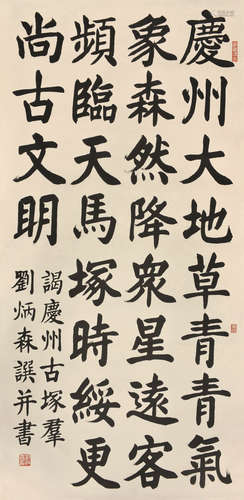 慶州大地草青青氣
象森然降衆星遠客
頻臨天馬塚時綏更
尚古文明
謁慶州古塚羣
劉炳森譔并書